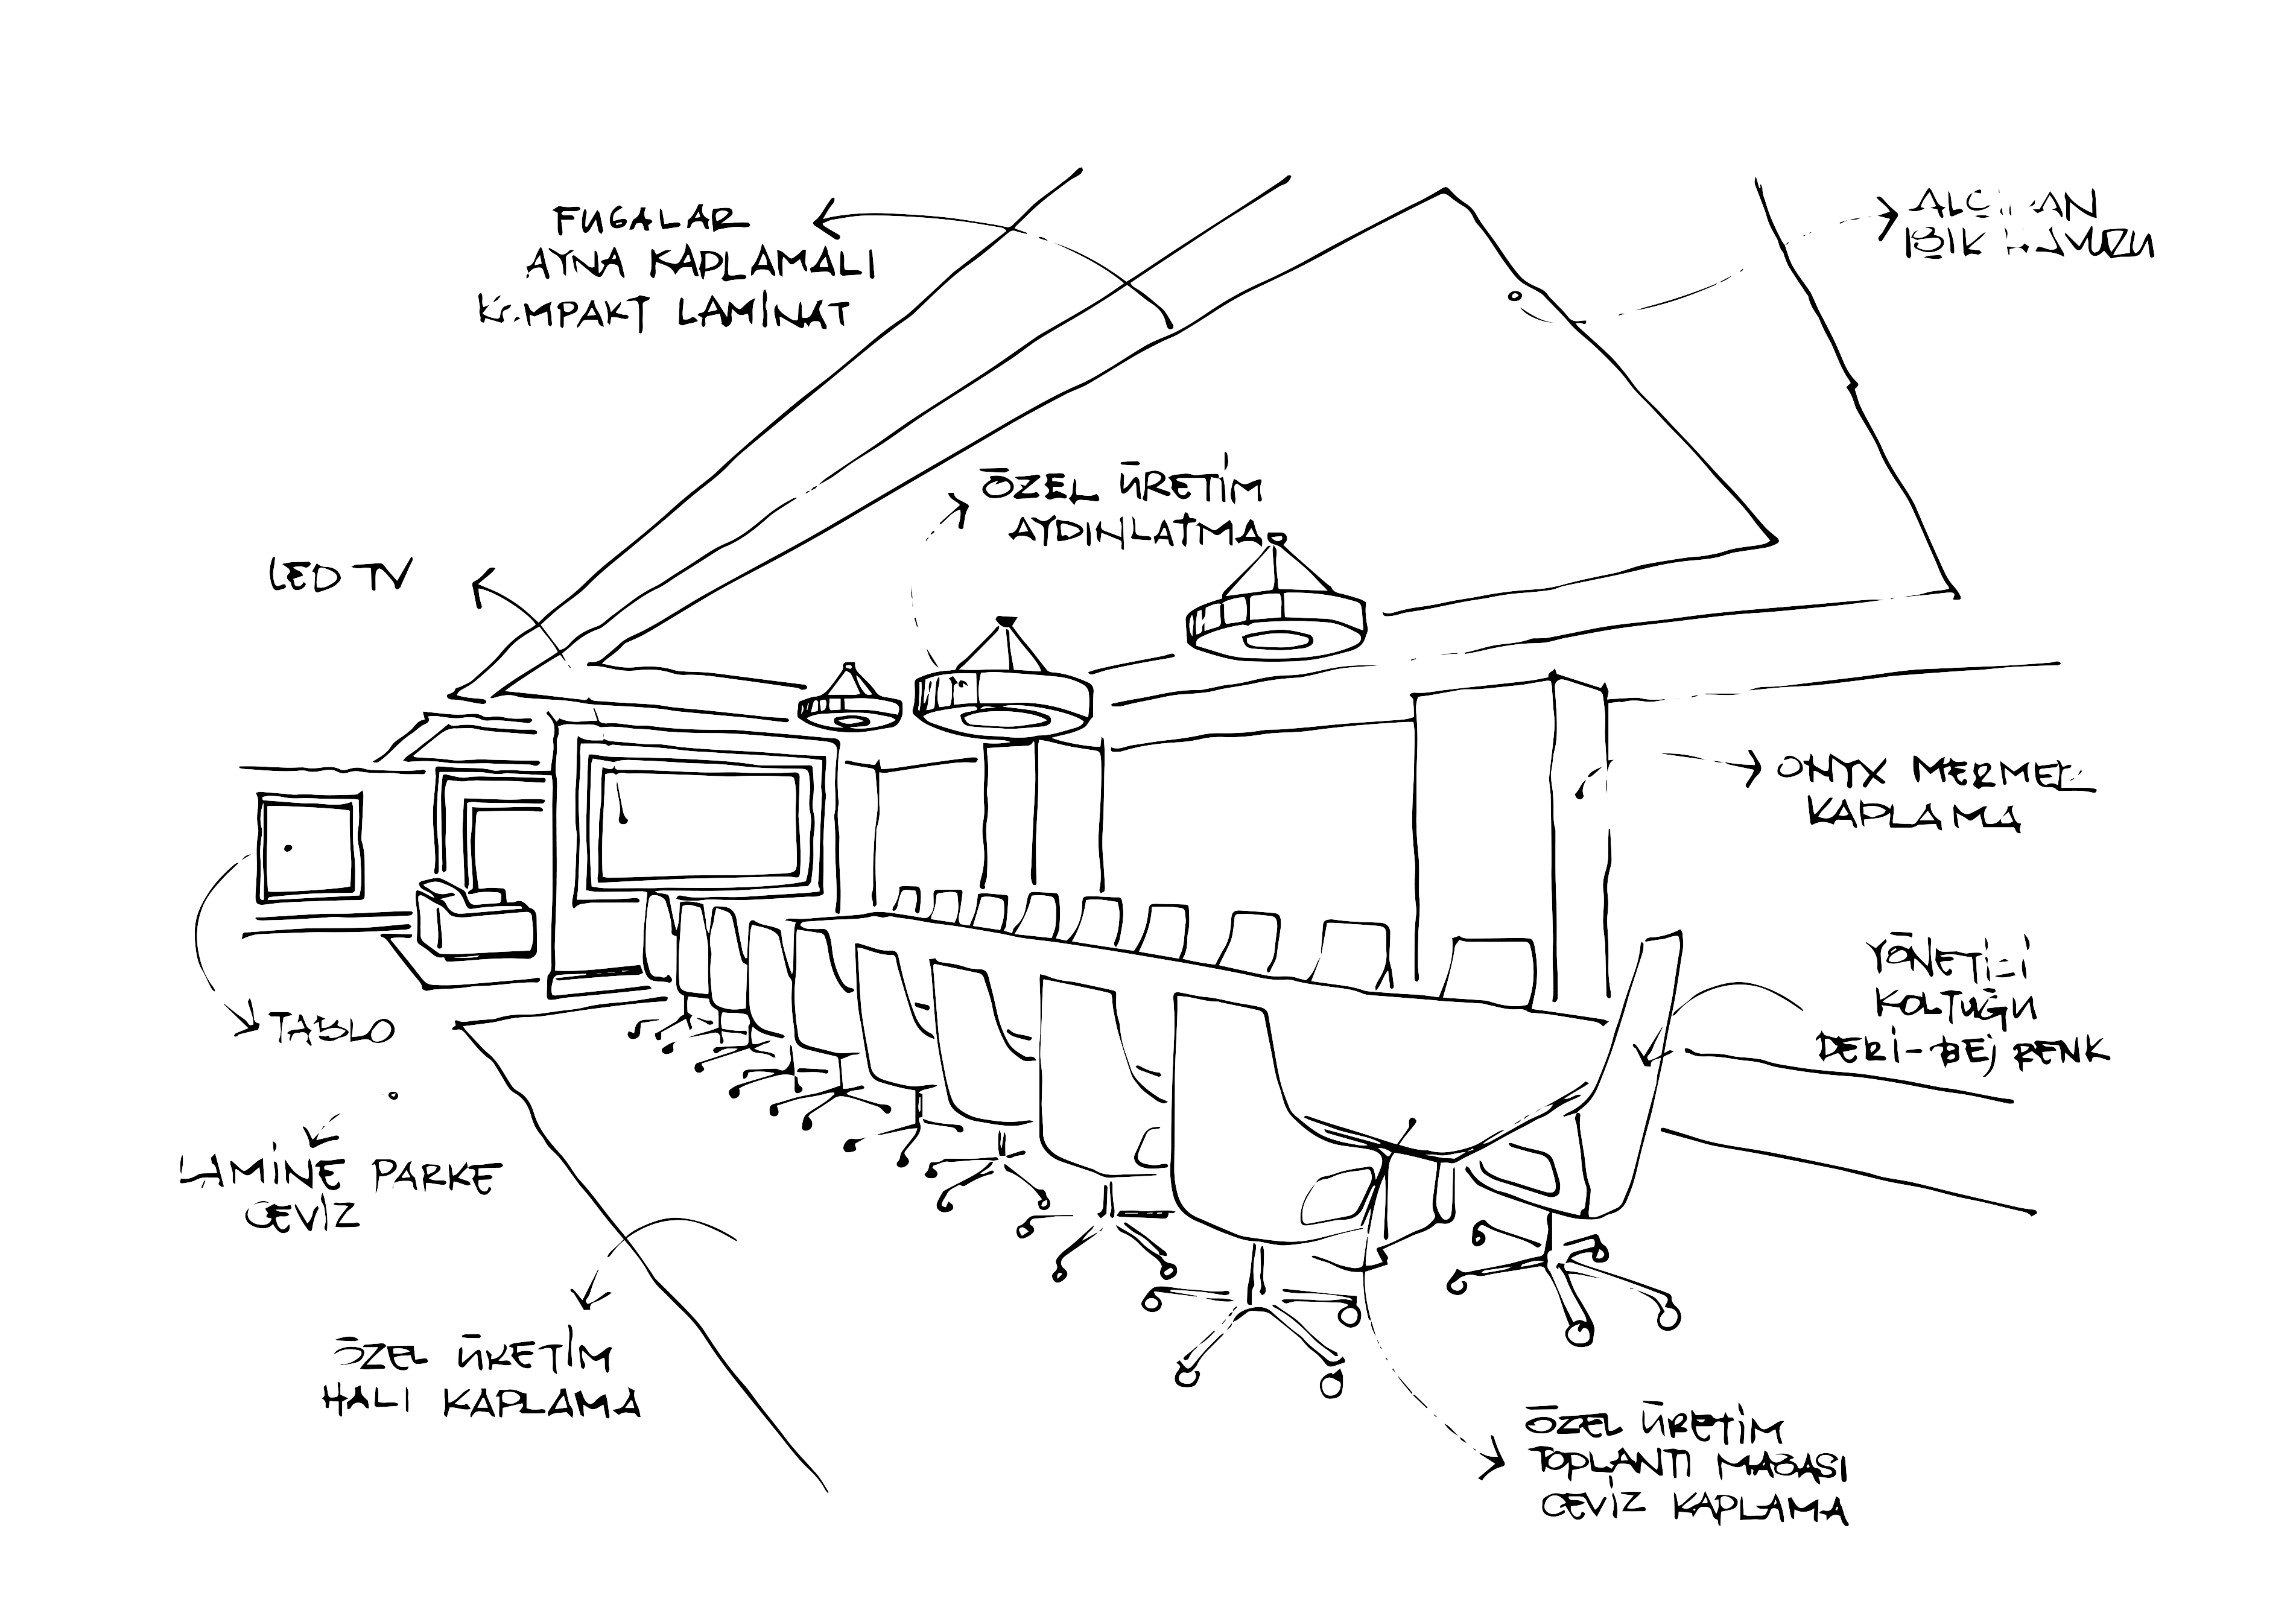 FUGALAR
AYNA KAPLAMALI
KOMPAKT LAMİNAT
ÖZEL ÜRETİM
AYDINLATMA
LED TV
ONYX MERMER
KAPLAMA
YÖNETİCİ
KOLTUĞU
DERİ-BEJ RENK
TABLO
LAMİNE PARKE
CEVİZ
ÖZEL ÜRETİM
HALI KAPLAMA
ÖZEL ÜRETİM
TOPLANTI MASASI
CEVİZ KAPLAMA